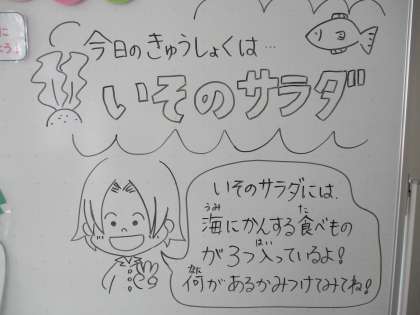 今日のきゅうしょくは…
いそのサラダ
いそのサラダには、
海にかんする食べもの
うみ
た
が3つ入っているよ!
はい
何があるかみつけてみてね!
なに